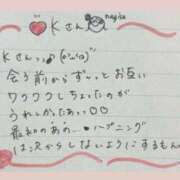 Kさん
nagisa
Kさんっっ♪(o'ω'o)
会う前からずーっとお互い
ワクワクしちゃったのが
うれしかったぁっ○○
最初のあの…ハプニング
は沢からしないようにするもん